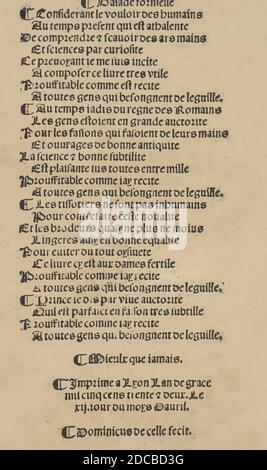 Balade formelle
¶ Considerant le vouloir des humains
Au temps present qui est a thalente
De comprendre ⁊ scauoir des ars mains
Et sciences par curiosite
Ce preuoyant ie me suis incite
A composer ce liure tres vtile
Prouffitable comme est recite
A toutes gens qui besongnent de leguille.
¶ Au temps iadis du regne des Romains
Les gens estoient en grande auctorite
Pour les fassons qui faisoient de leurs mains
Et ouurages de bonne antiquite
La science ⁊ bonne subtilite
Est plaisante sus toutes entre mille
Prouffitable comme iay recite
A toutes gens qui besongnent de leguille.
¶ Les tissotiers ne sont pas inhumains
Pour contrefaire ceste noualite
Et les brodeurs quay ne plus ne moins
Lingeres auly en bonne equalite
Pour euiter du tout oysiuete
Ce liure cy est aux dames fertile
Prouffitable comme iay recite
A toutes gens qui besongnent de leguille.
¶ Prince ie dis par viue auctorite
Quil est parfaict en fa son tres subtille
Prouffitable comme iay recite
A toutes gens qui besongnent de leguille.
¶ Mieulx que iamais.
¶ Imprime a Lyon Lan de grace
mil cinq cens trente ⁊ deux. Le
xij. iour du moys Dauril.
¶ Dominicus de celle fecit.
alamy
Image ID: 2DCBD3G
www.alamy.com